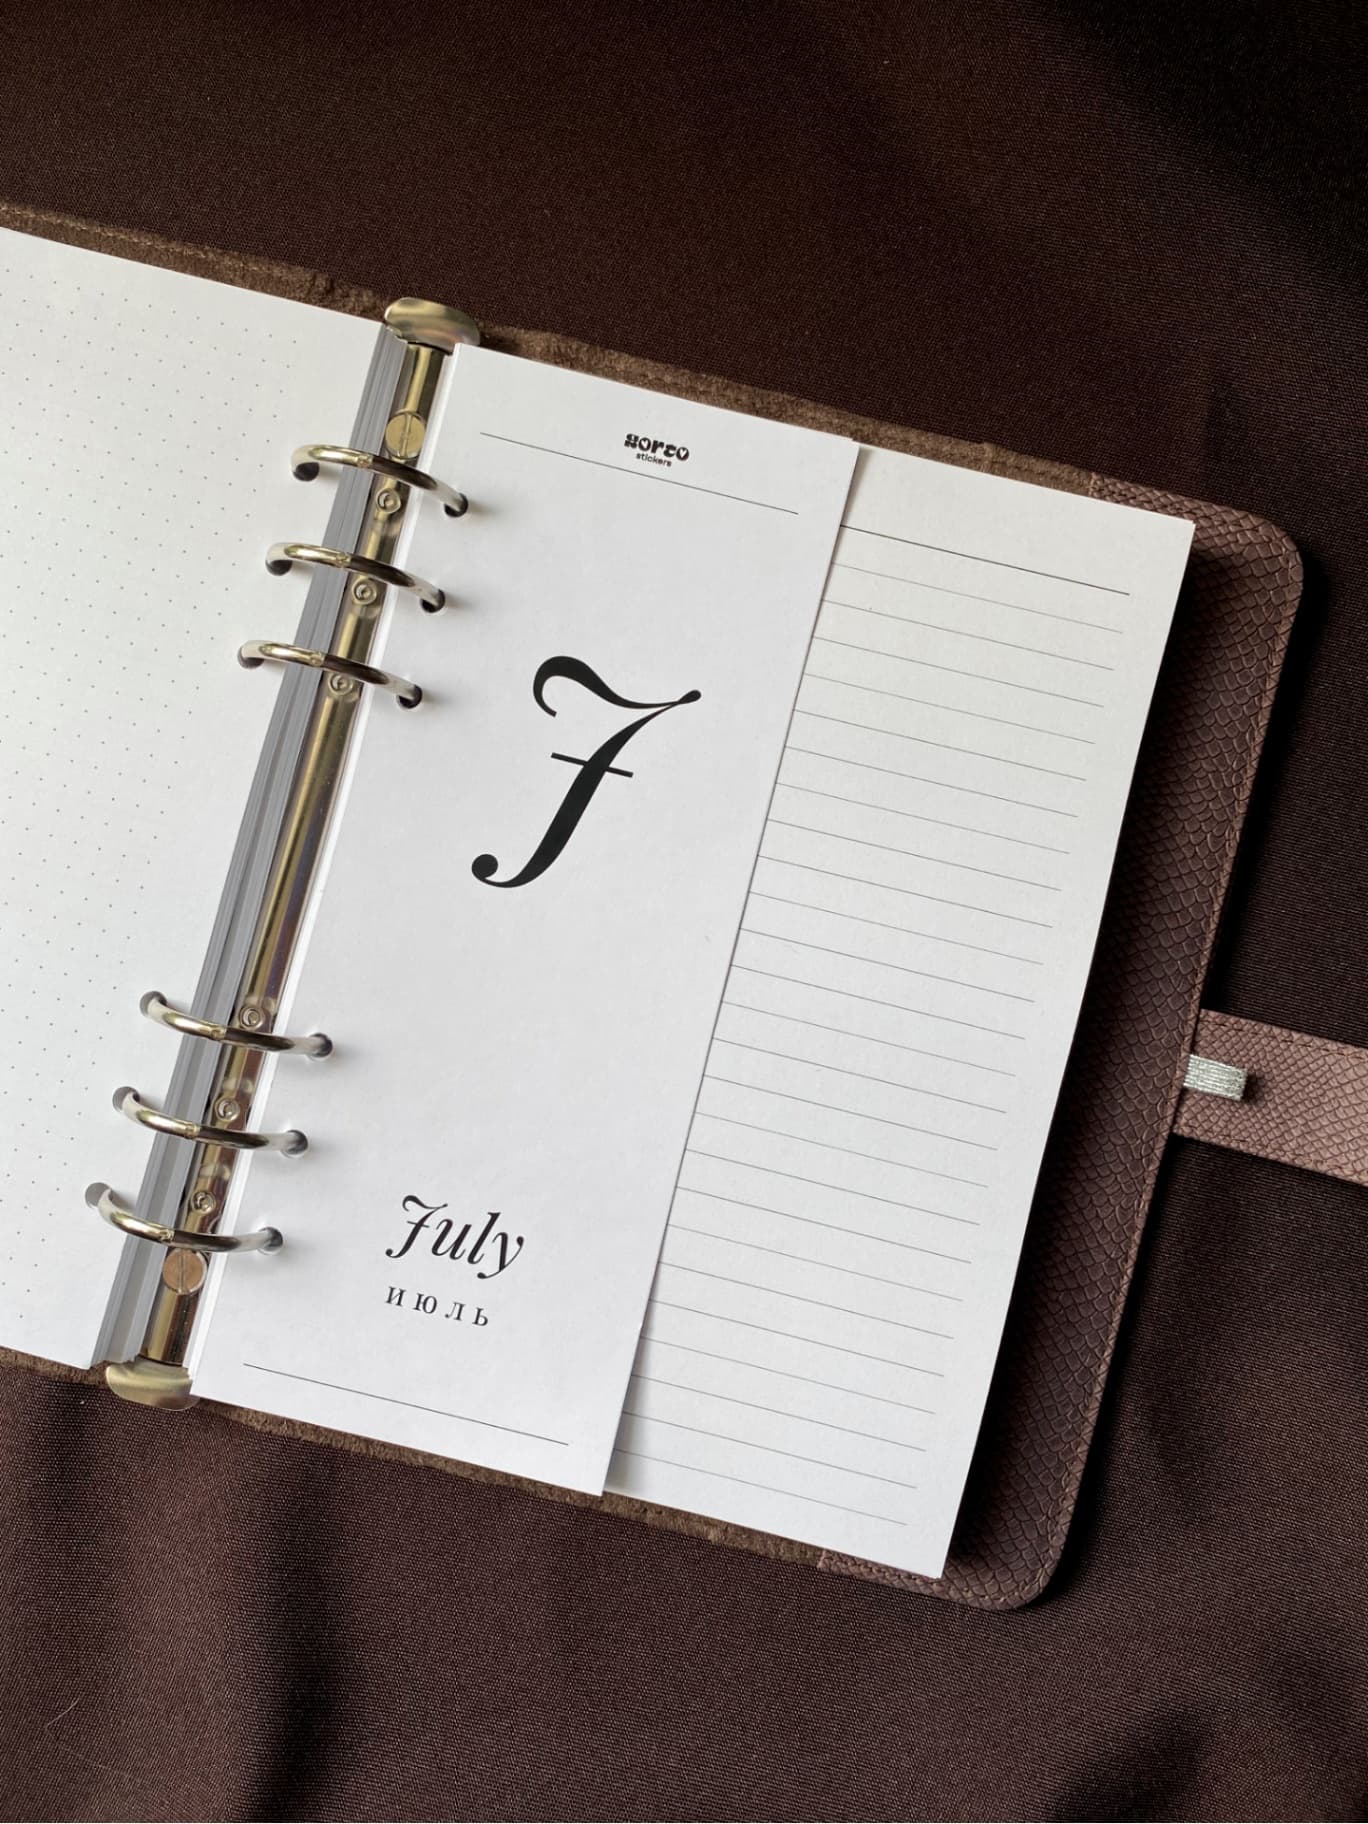 xorto
stickers
J
July
июль